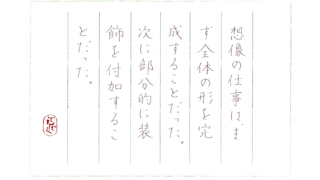 想像の仕事は、ま
ず全体の形を完
成することだった。
次に部分的に装
飾を付加するこ
とだった。